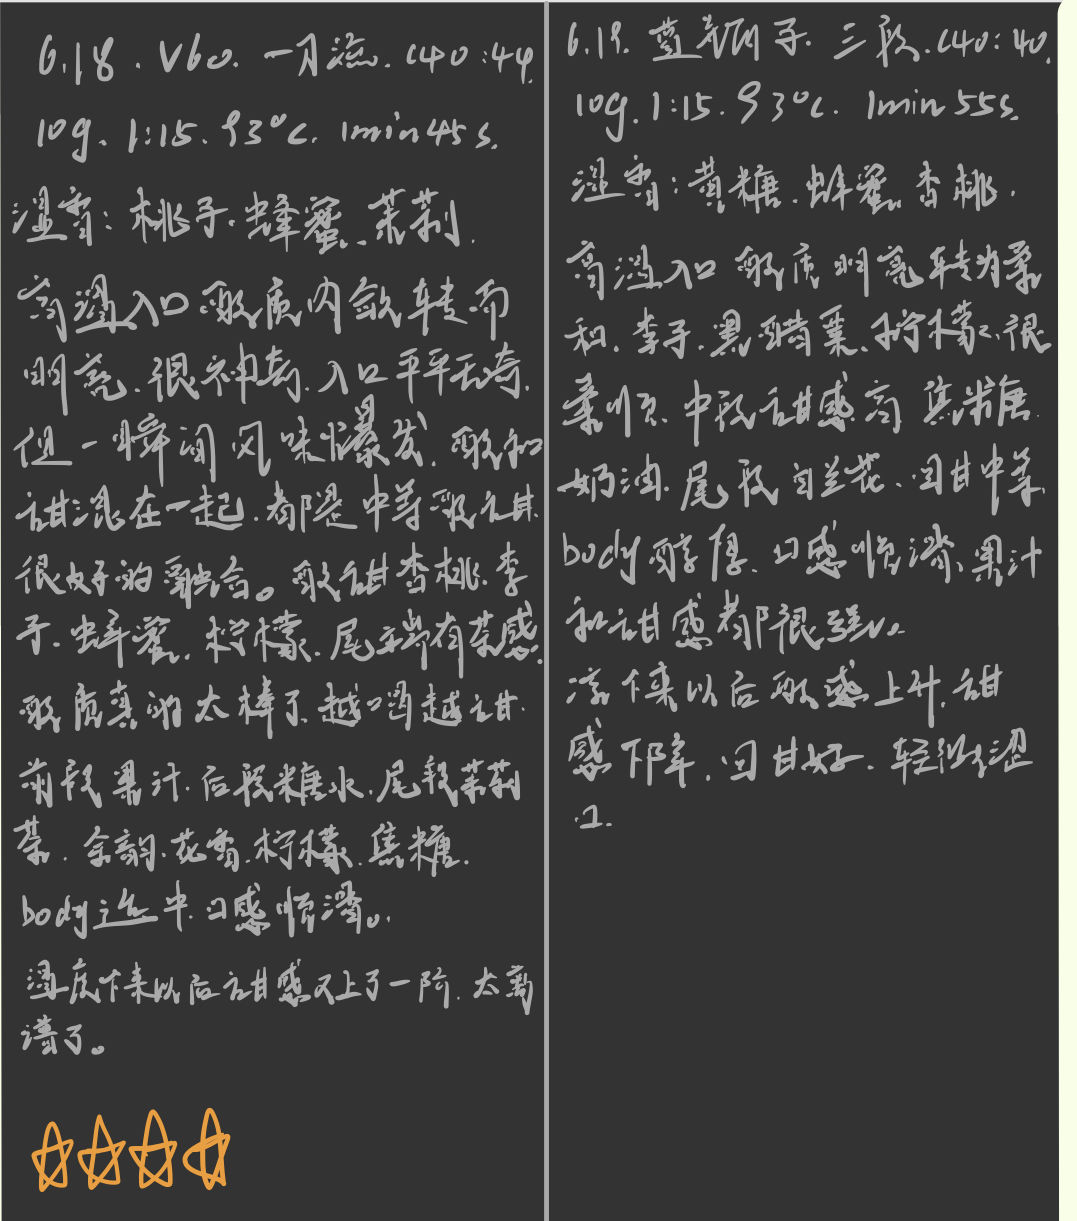 6.18. V60. 一刀流. C40:44.
10g. 1:15. 93°C. 1min45s.
湿香: 桃子. 蜂蜜. 茉莉.
高温入口酸质内敛转而
明亮. 很神奇. 入口平平无奇.
但一瞬间风味爆发. 酸和
甜混在一起. 都是中等酸甜.
很好的融合。酸甜香桃. 李
子. 蜂蜜. 柠檬. 尾端有茶感.
酸质真的太棒了. 越喝越甜.
前段果汁. 后段糖水. 尾段茉莉
茶. 余韵. 花香. 柠檬. 焦糖.
body适中. 口感顺滑。
温度下来以后甜感又上了一阶. 太离
谱了。
6.19. 蓝瓶子. 三段. C40:40.
10g. 1:15. 93°C. 1min55s.
湿香: 黄糖. 蜂蜜. 香桃.
高温入口酸质明亮转为柔
和. 李子. 黑醋栗. 柠檬. 很
柔顺. 中段甜感高. 焦糖.
奶油. 尾段白兰花. 回甘中等.
body醇厚. 口感顺滑. 果汁
和甜感都很强。
凉下来以后酸感上升. 甜
感下降. 回甘好. 轻微涩
口.